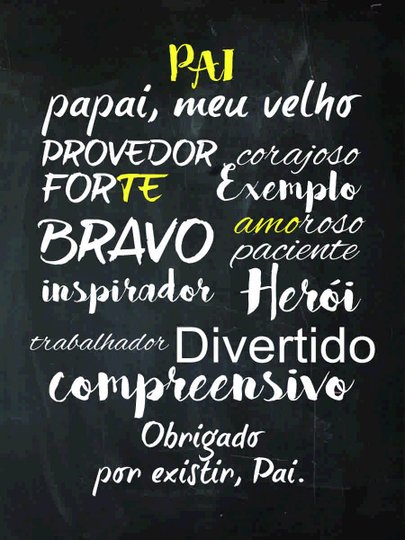 PAI
papai, meu velho
PROVEDOR corajoso
FORTE Exemplo
BRAVO amoroso
paciente
inspirador Herói
trabalhador Divertido
compreensivo
Obrigado
por existir, Pai.